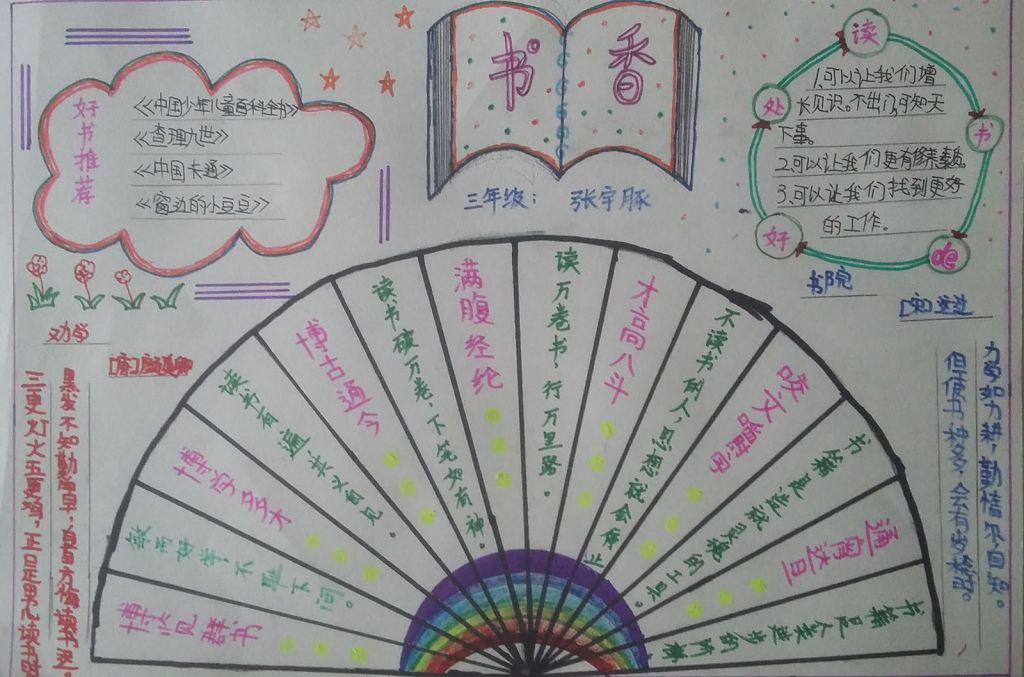 书香
三年级： 张宇豚
好书推荐
《中国少年儿童百科全书》
《查理九世》
《中国卡通》
《窗边的小豆豆》
读书的好处
1.可以让我们增
长见识。不出门可知天
下事。
2.可以让我们更有修养素质。
3.可以让我们找到更好
的工作。
劝学
[唐]颜真卿
三更灯火五更鸡，正是男儿读书时
黑发不知勤学早，白首方悔读书迟。
博览群书
敏而好学不耻下问。
博学多才
读书百遍其义自见
博古通今
读书破万卷，下笔如有神。
满腹经纶
读万卷书，行万里路。
才高八斗
不读书的人，思想就会停止
咬文嚼字
书籍是造就灵魂的工具。
通宵达旦
书籍是人类进步的阶梯
书院
[宋]
力学如力耕，勤惰尔自知。
但使书种多，会有岁稔时。